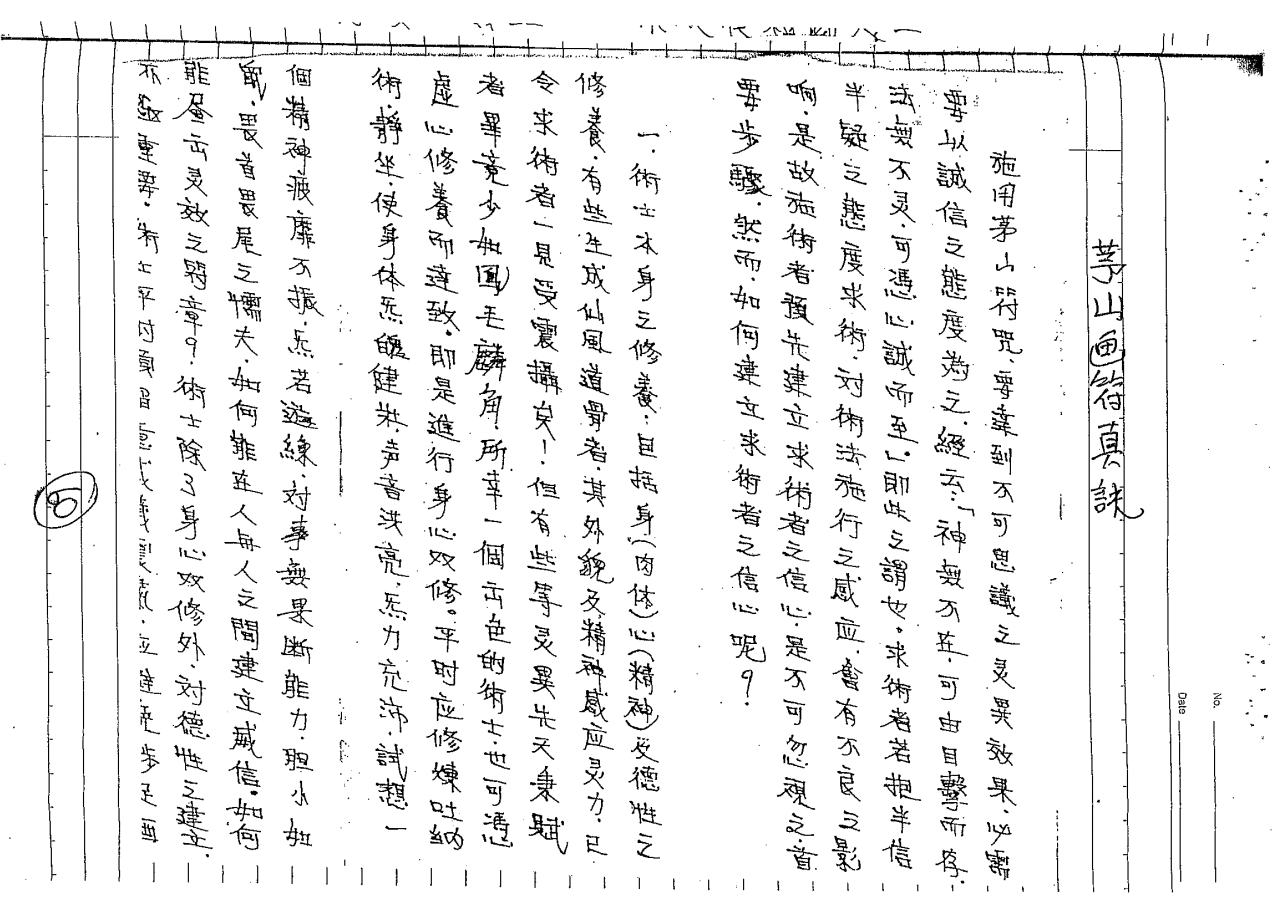 茅山画符真訣
施用茅山符咒,要達到不可思議之灵異效果,必需
要以誠信之態度為之,經云:「神無不在,可由目擊而存,
法無不灵,可憑心誠而至」即此之謂也。求術者若抱半信
半疑之態度求術,対術法施行之感应,會有不良之影
响,是故施術者預先建立求術者之信心,是不可忽視之首
要步驟,然而,如何建立求術者之信心呢?
一、術士本身之修養:包括身(肉体)心(精神)及德性之
修養,有些生成仙風道骨者,其外貌及精神感应灵力,已
令求術者一見受震攝矣!但有些等灵異先天秉賦
者畢竟少如鳳毛麟角,所幸一個出色的術士,也可憑
虛心修養而達致,即是進行身心双修。平时应修煉吐納
術,静坐,使身体炁魄健壯,声音洪亮,炁力充沛,試想一
個精神疲靡不振,炁若遊線,対事無果断能力,胆小如
鼠,畏首畏尾之懦夫,如何能在人與人之間建立威信,如何
能画出灵效之符章?術士除了身心双修外,対德性之建立,
亦極重要,術士平时須留意
8
No.
Date